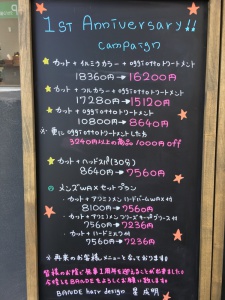 1ST Anniversary!!
campaign
カット+イルミナカラー+oggiottoトリートメント
18360円→16200円
カット+フルカラー+oggiottoトリートメント
17280円→15120円
カット+oggiottoトリートメント
10800円→8640円
※更にoggiottoトリートメントした方
3240円以上の商品1000円off
カット+ヘッドスパ(30分)
8640円→7560円
メンズWAXセットプラン
・カット+アリミノメンハードバームWAX付
8100円→7560円
・カット+アリミノメンフリーズキープグリース付
7560円→7236円
・カット+ハードミルク付
7560円→7236円
※再来のお客様メニューとなっております
皆様のお陰で無事1周年を迎えることが出来ました。
今後もBANDEをよろしくお願い致します
BANDE hair design 星 成明